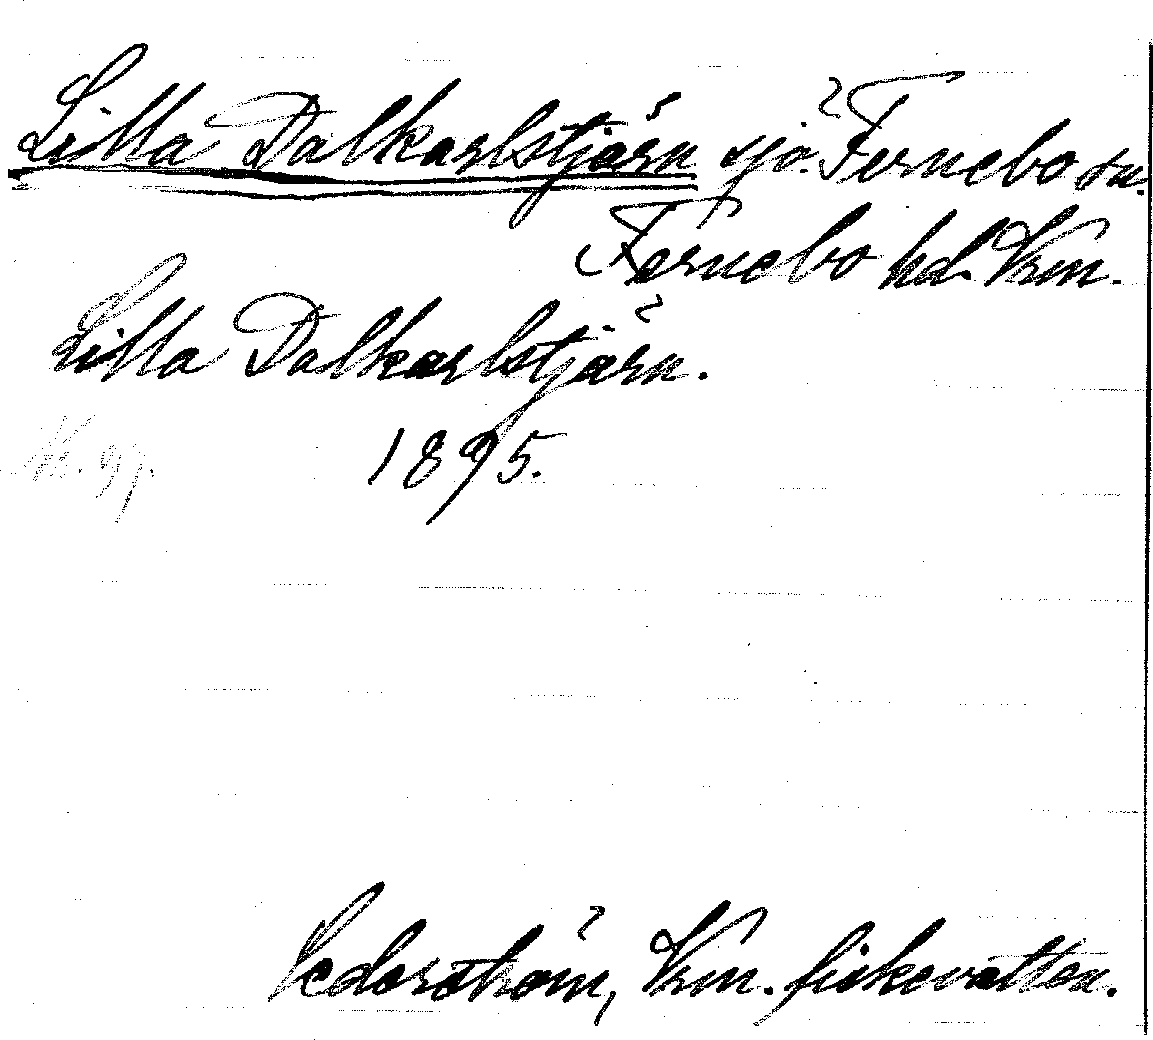 Lilla Dalkarlstjärn sjö. Fernebo sn.
Fernebo hd. Vrm.
Lilla Dalkarlstjärn.
1895.
Cederström, Vrm. fiskevatten.